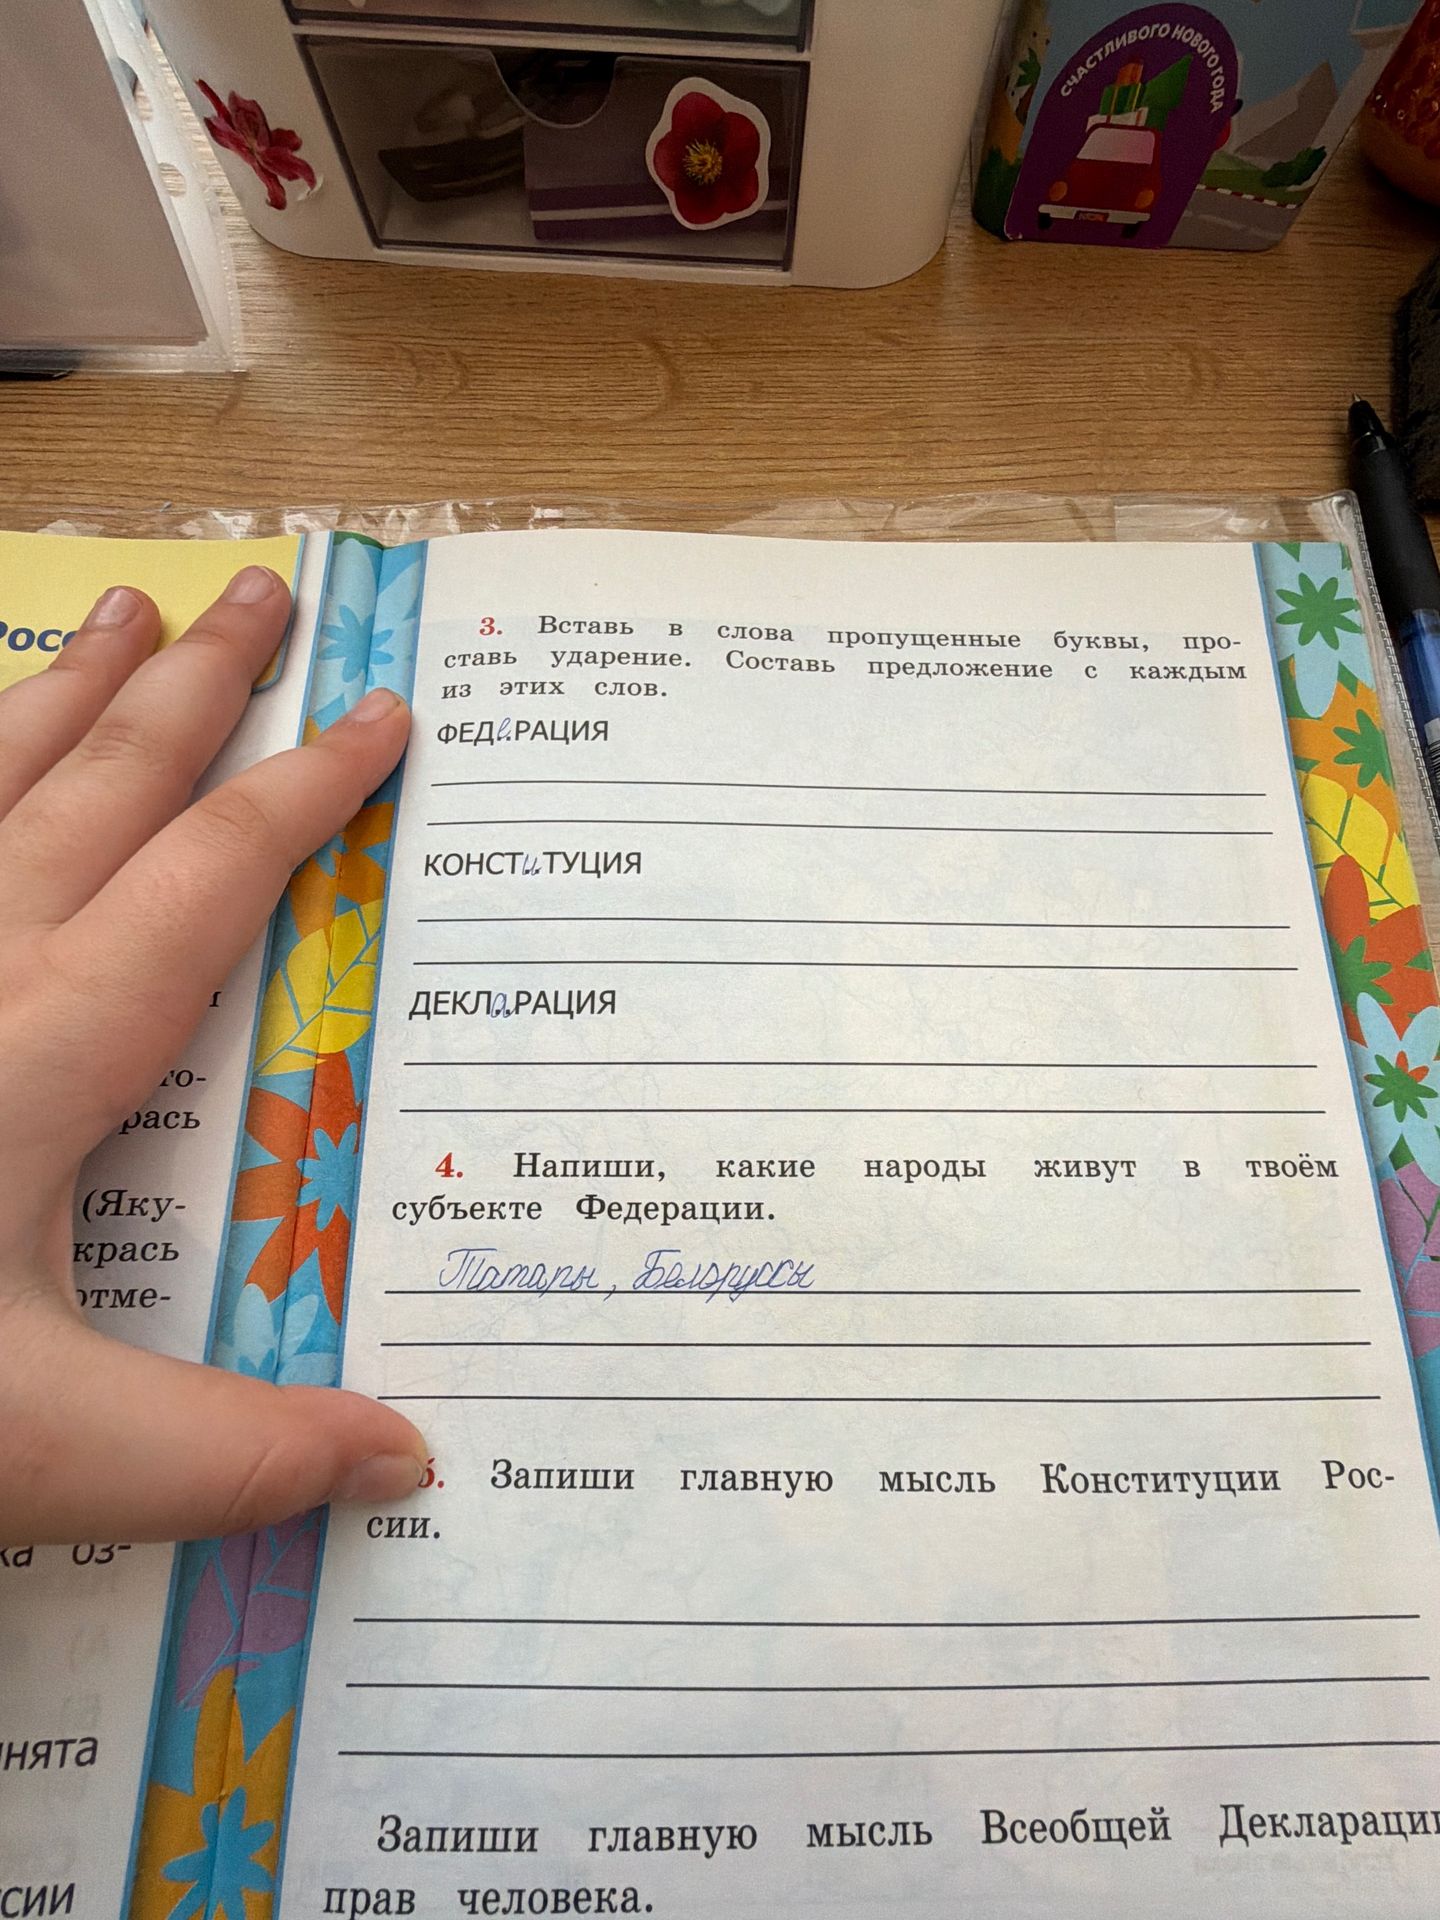 СЧАСТЛИВОГО НОВОГО ГОДА
3. Вставь в слова пропущенные буквы, про-
ставь ударение. Составь предложение с каждым
из этих слов.
ФЕДеРАЦИЯ
КОНСТиТУЦИЯ
ДЕКЛаРАЦИЯ
4. Напиши, какие народы живут в твоём
субъекте Федерации.
Татары, Белоруссы
5. Запиши главную мысль Конституции Рос-
сии.
Запиши главную мысль Всеобщей Декларации
прав человека.
го-
рась
(Яку-
крась
отме-
оз-
нята
сии